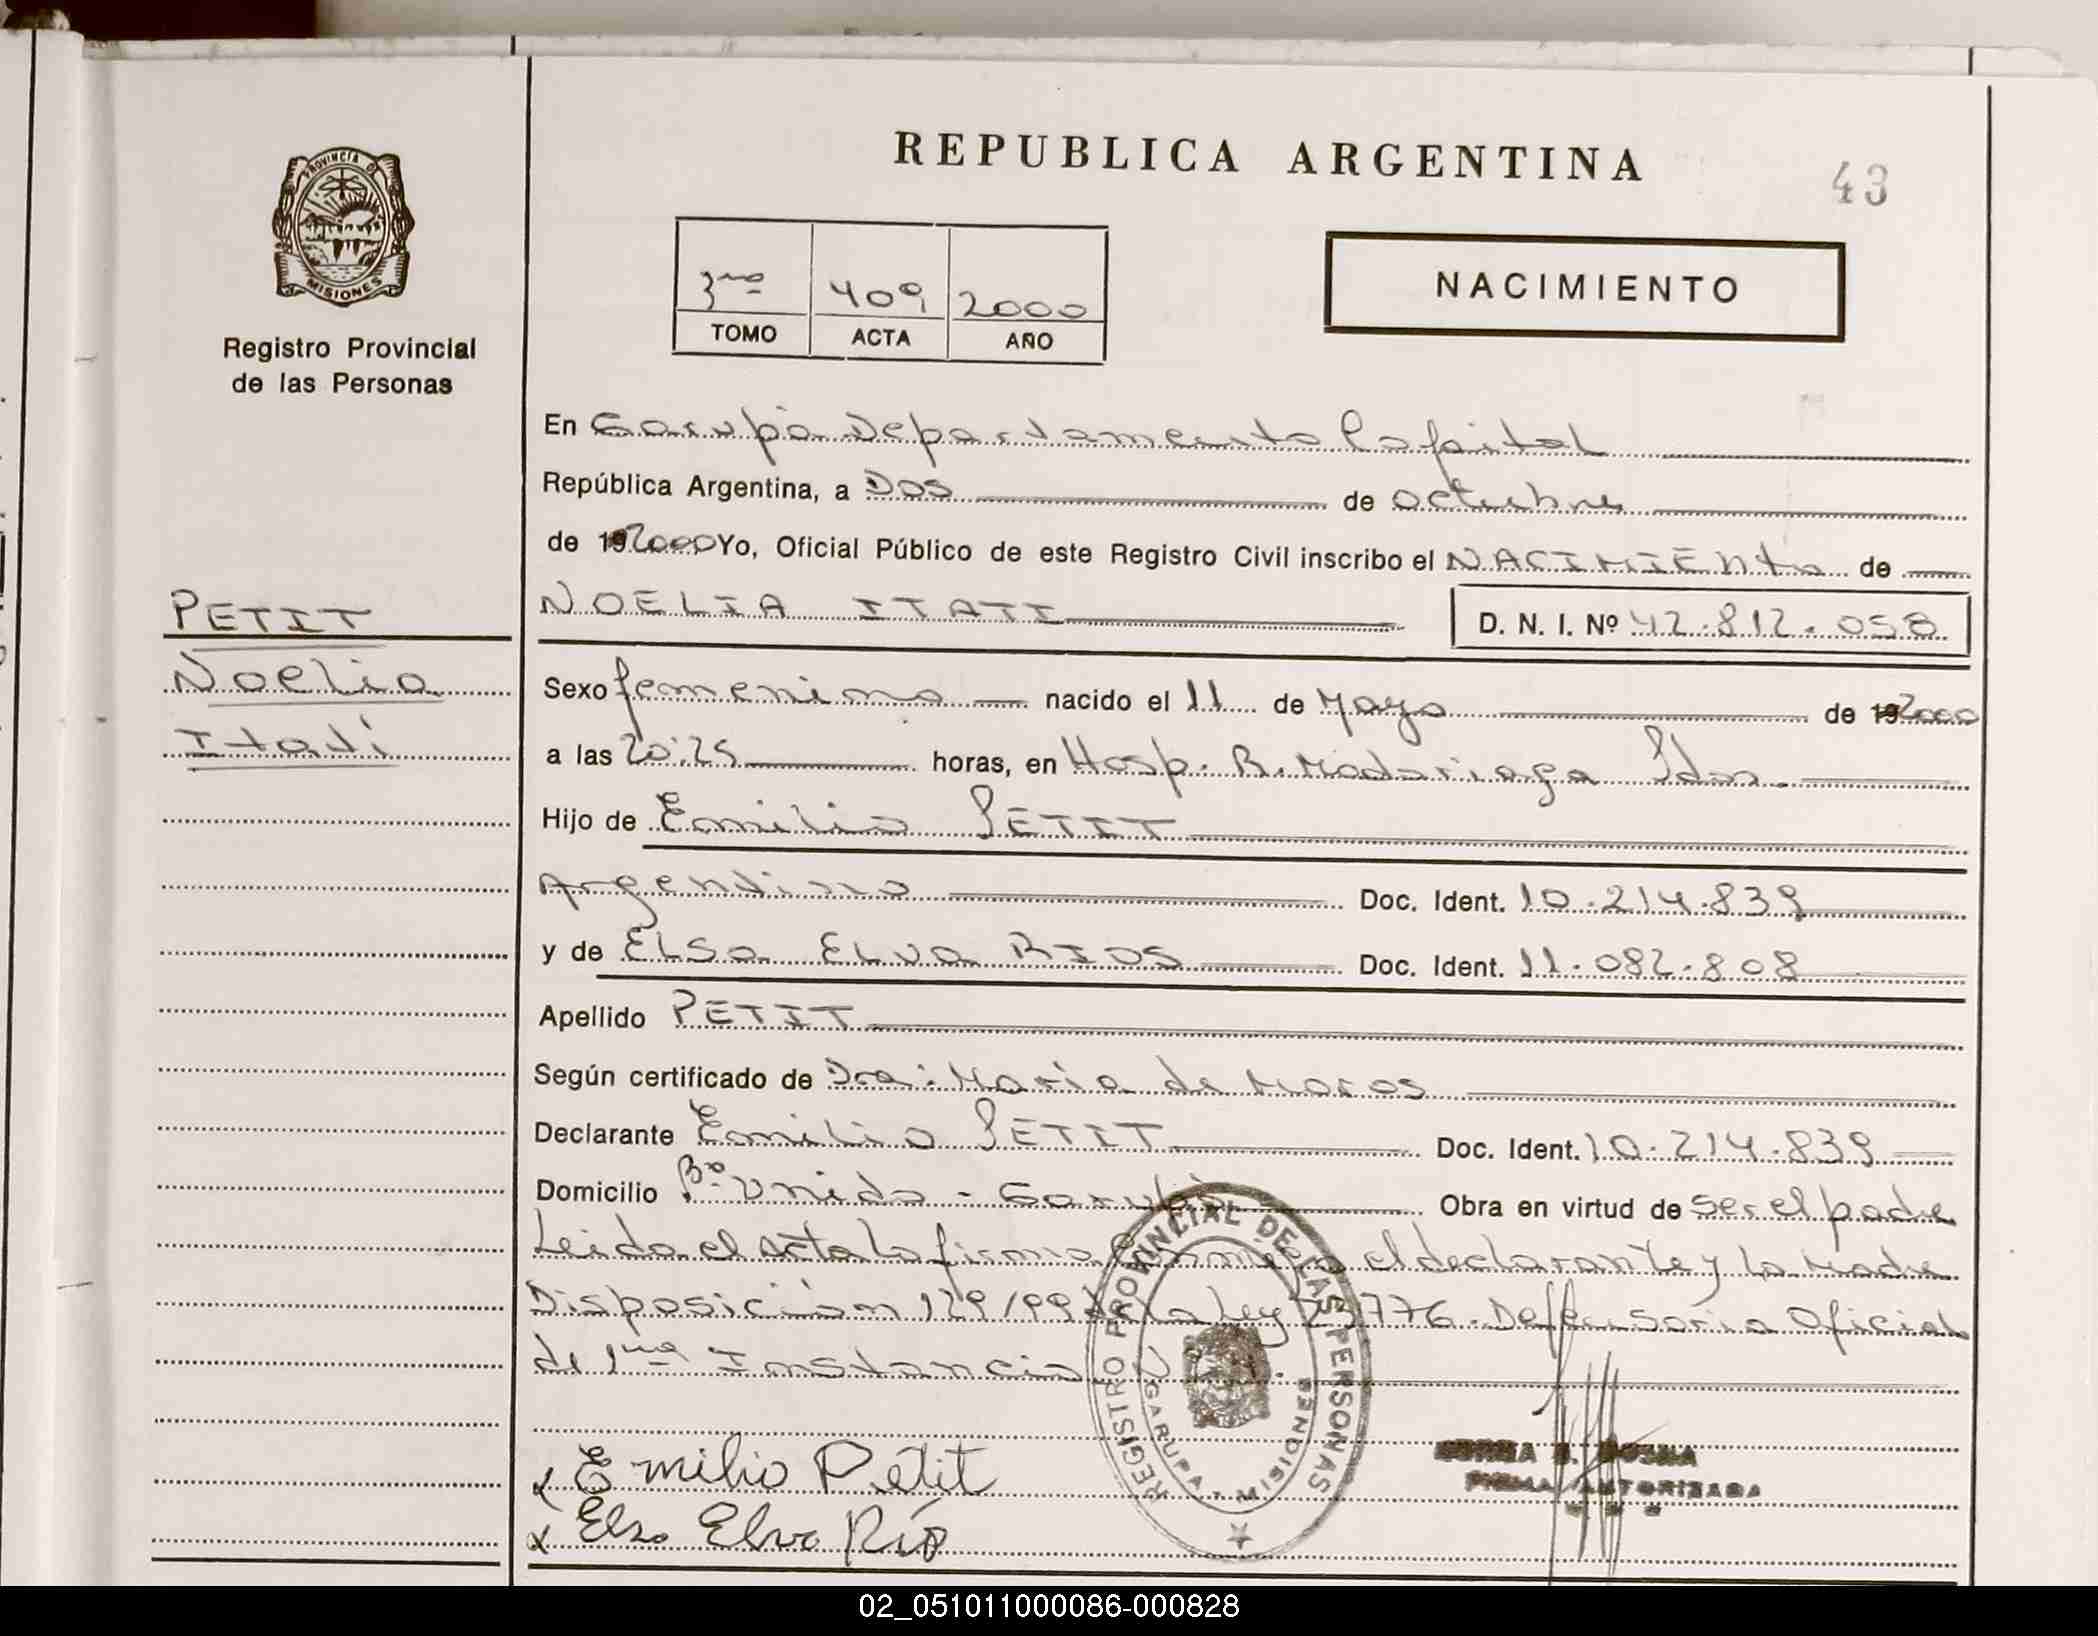 REPUBLICA ARGENTINA
43
PROVINCIA DE
MISIONES
Registro Provincial
de las Personas
3ro 409 2000
TOMO ACTA AÑO
NACIMIENTO
En Garupá Departamento Capital
República Argentina, a Dos de octubre
de 192000 Yo, Oficial Público de este Registro Civil inscribo el NACIMIENto de
NOELIA ITATI D. N. I. Nº 42.812.058
PETIT
Noelia
Itatí
Sexo femenino nacido el 11 de Mayo de 192000
a las 20:25 horas, en Hosp. R. Madariaga Pdas.
Hijo de Emilio PETIT
Argentino Doc. Ident. 10.214.839
y de ELSA ELVA RIOS Doc. Ident. 11.082.808
Apellido PETIT
Según certificado de Dra: Maria de Marcos
Declarante Emilio PETIT Doc. Ident. 10.214.839
Domicilio Bº Unido - Garupá Obra en virtud de ser el padre
Leida el acta la firma conmigo el declarante y la Madre
Disposición 129/99 de la Ley 23776. Defensoria Oficial
de 1ra Instancia N
REGISTRO PROVINCIAL DE LAS PERSONAS
GARUPA - MISIONES
Emilio Petit
Elsa Elva Río
FIRMA AUTORIZADA
02_051011000086-000828